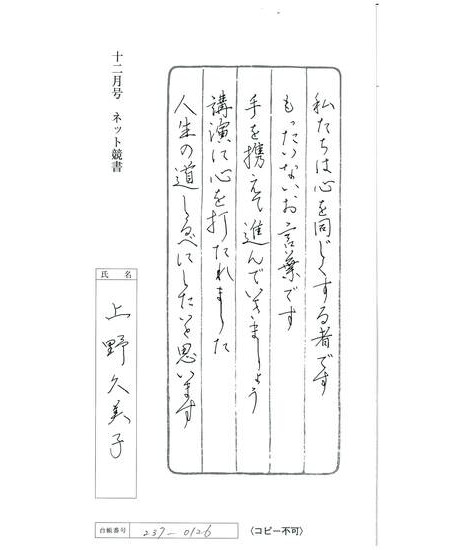 私たちは心を同じくする者です
もったいないお言葉です
手を携えて進んでいきましょう
講演に心を打たれました
人生の道しるべにしたいと思います
十二月号 ネット競書
氏名
上野久美子
台紙番号 237-0126
〈コピー不可〉